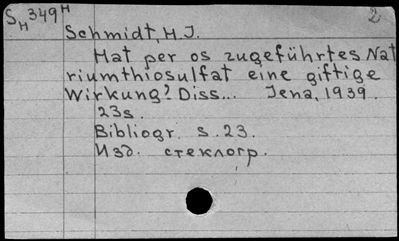 S_H 349 H 2
Schmidt, H.J.
Hat per os zugeführtes Nat
riumthiosulfat eine giftige
Wirkung? Diss... Jena, 1939.
23s.
Bibliogr. s. 23.
Изд. стеклогр.